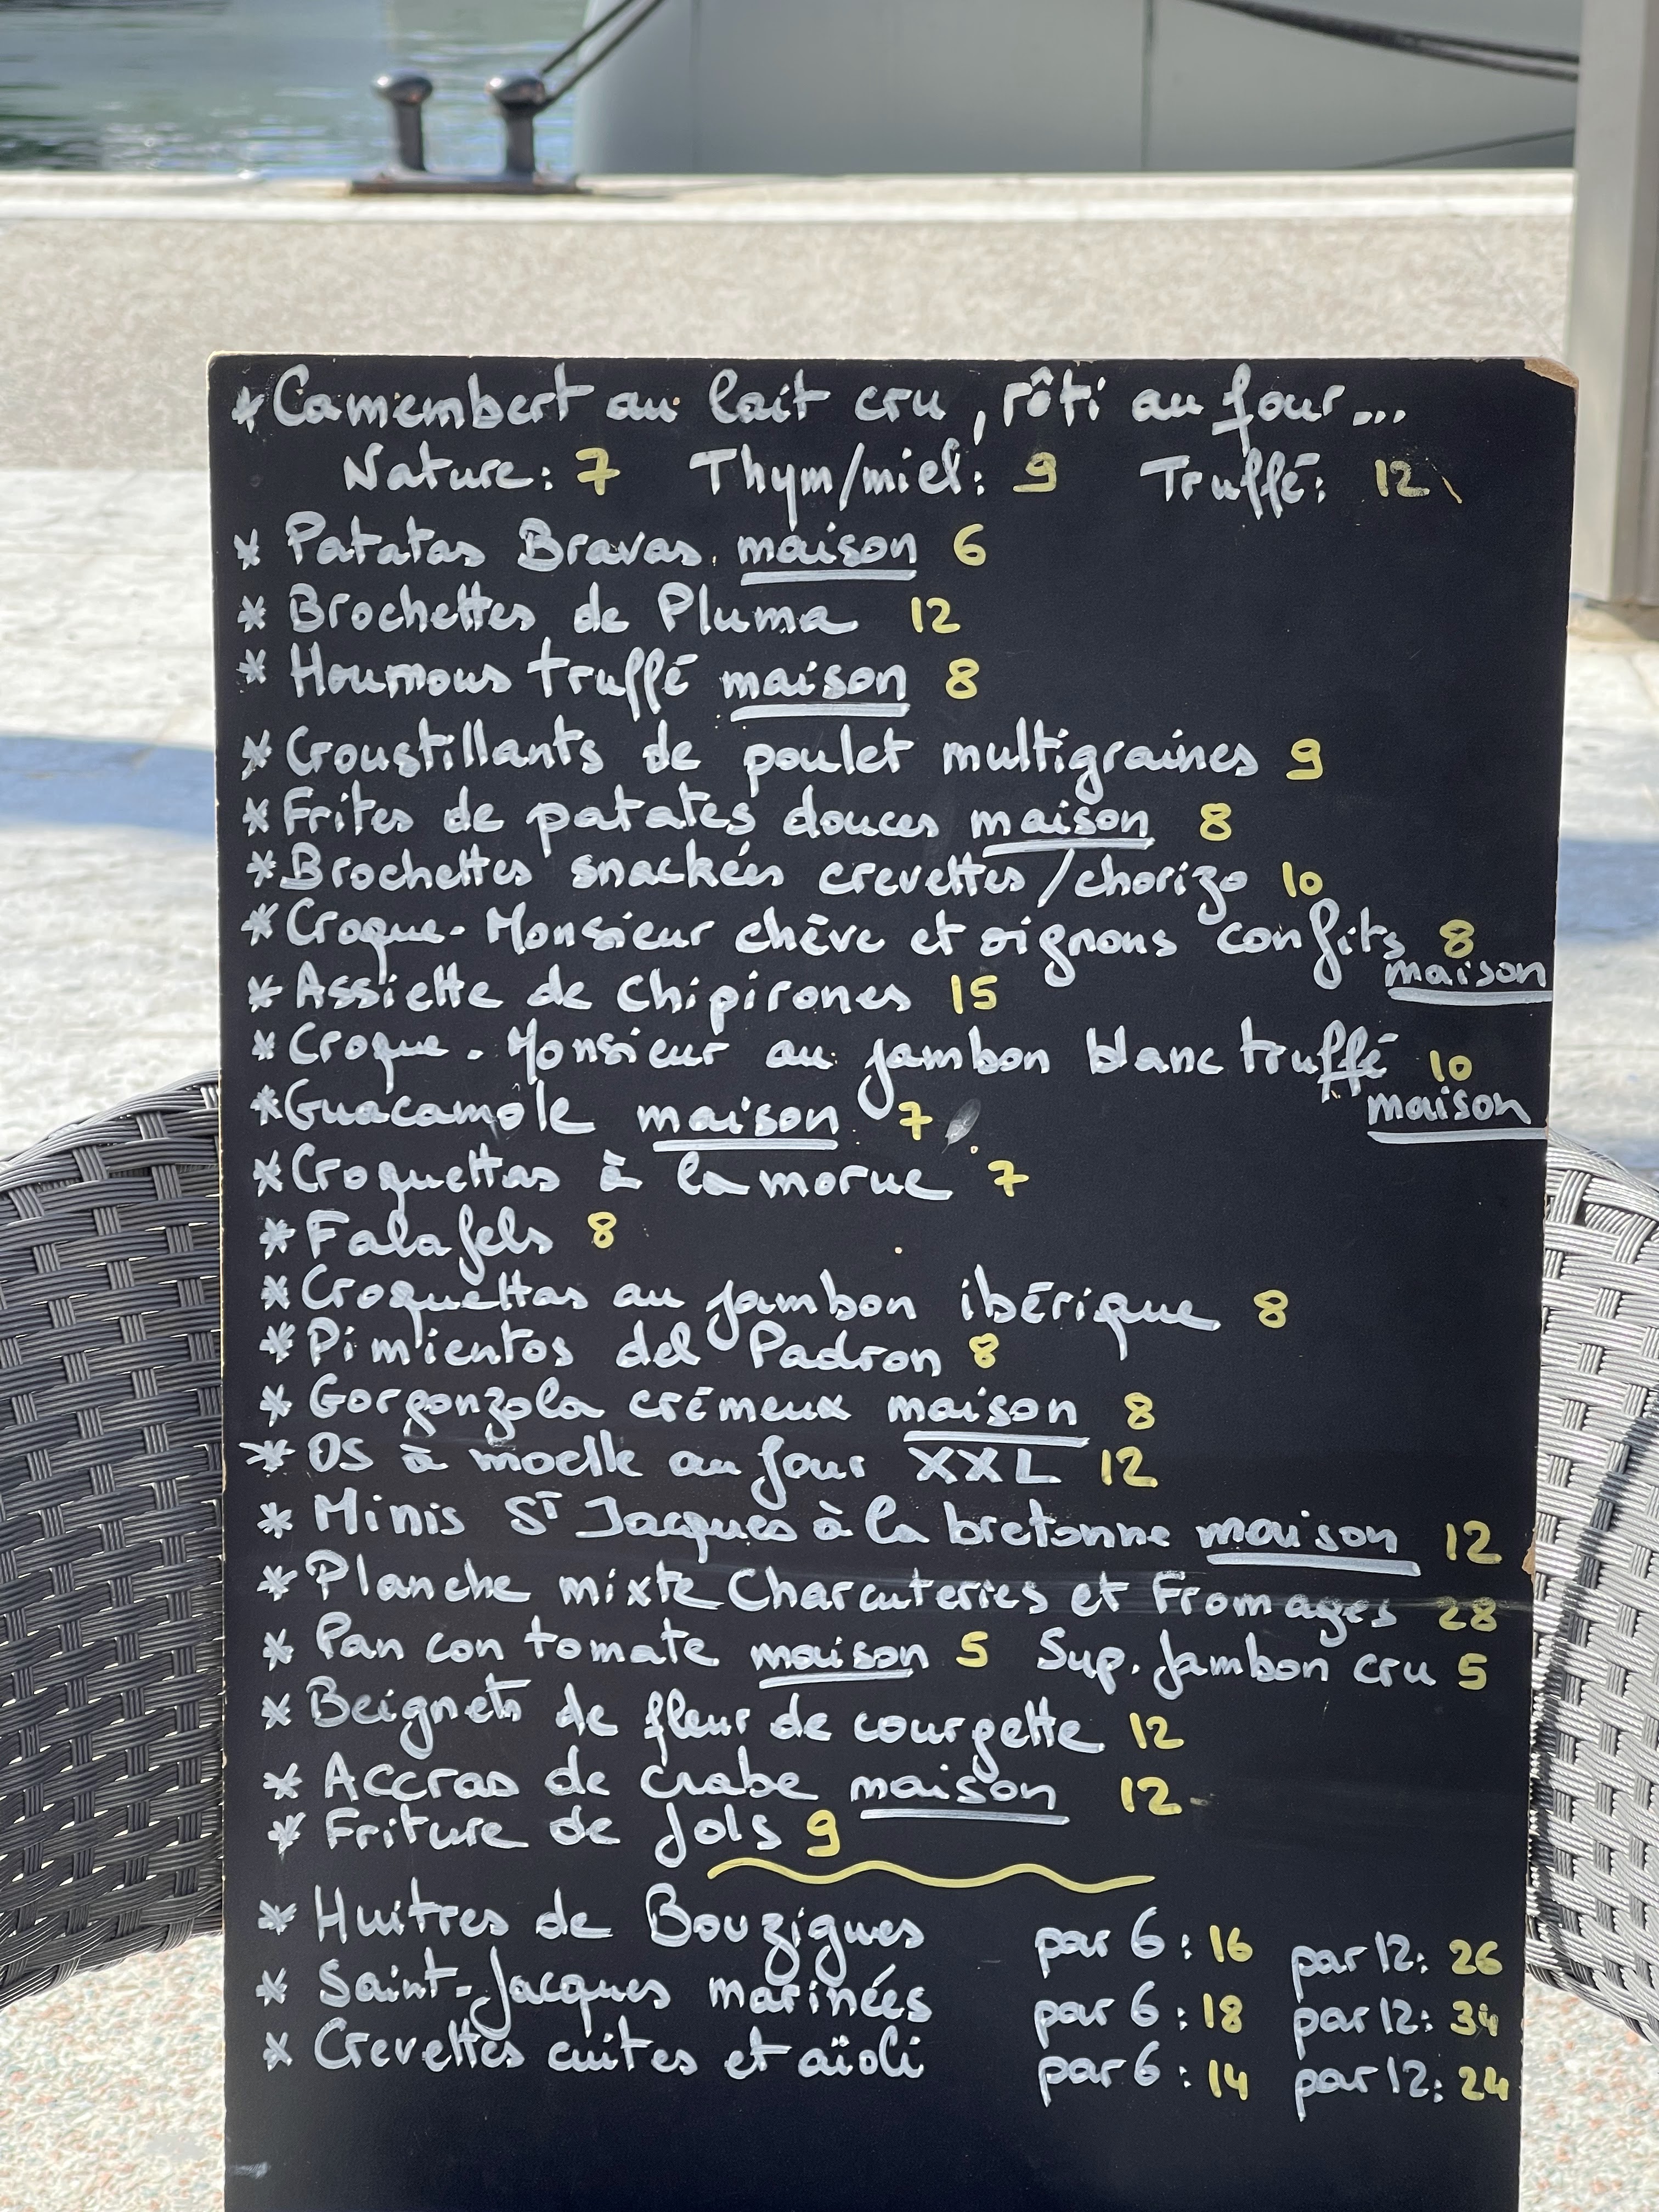 * Camembert au lait cru, rôti au four...
Nature: 7 Thym/miel: 9 Truffé: 12
* Patatas Bravas maison 6
* Brochettes de Pluma 12
* Houmous truffé maison 8
* Croustillants de poulet multigraines 9
* Frites de patates douces maison 8
* Brochettes snackées crevettes/chorizo 10
* Croque-Monsieur chèvre et oignons confits 8
maison
* Assiette de Chipirones 15
* Croque-Monsieur au jambon blanc truffé 10
maison
* Guacamole maison 7
* Croquettas à la morue 7
* Falafels 8
* Croquettas au jambon ibérique 8
* Pimientos del Padron 8
* Gorgonzola crémeux maison 8
* OS à moelle au four XXL 12
* Minis St Jacques à la bretonne maison 12
* Planche mixte Charcuteries et Fromages 28
* Pan con tomate maison 5 Sup. Jambon cru 5
* Beignets de fleur de courgette 12
* Accras de crabe maison 12
* Friture de Jols 9
* Huitres de Bouzigues par 6: 16 par 12: 26
* Saint-Jacques marinées par 6: 18 par 12: 34
* Crevettes cuites et aïoli par 6: 14 par 12: 24